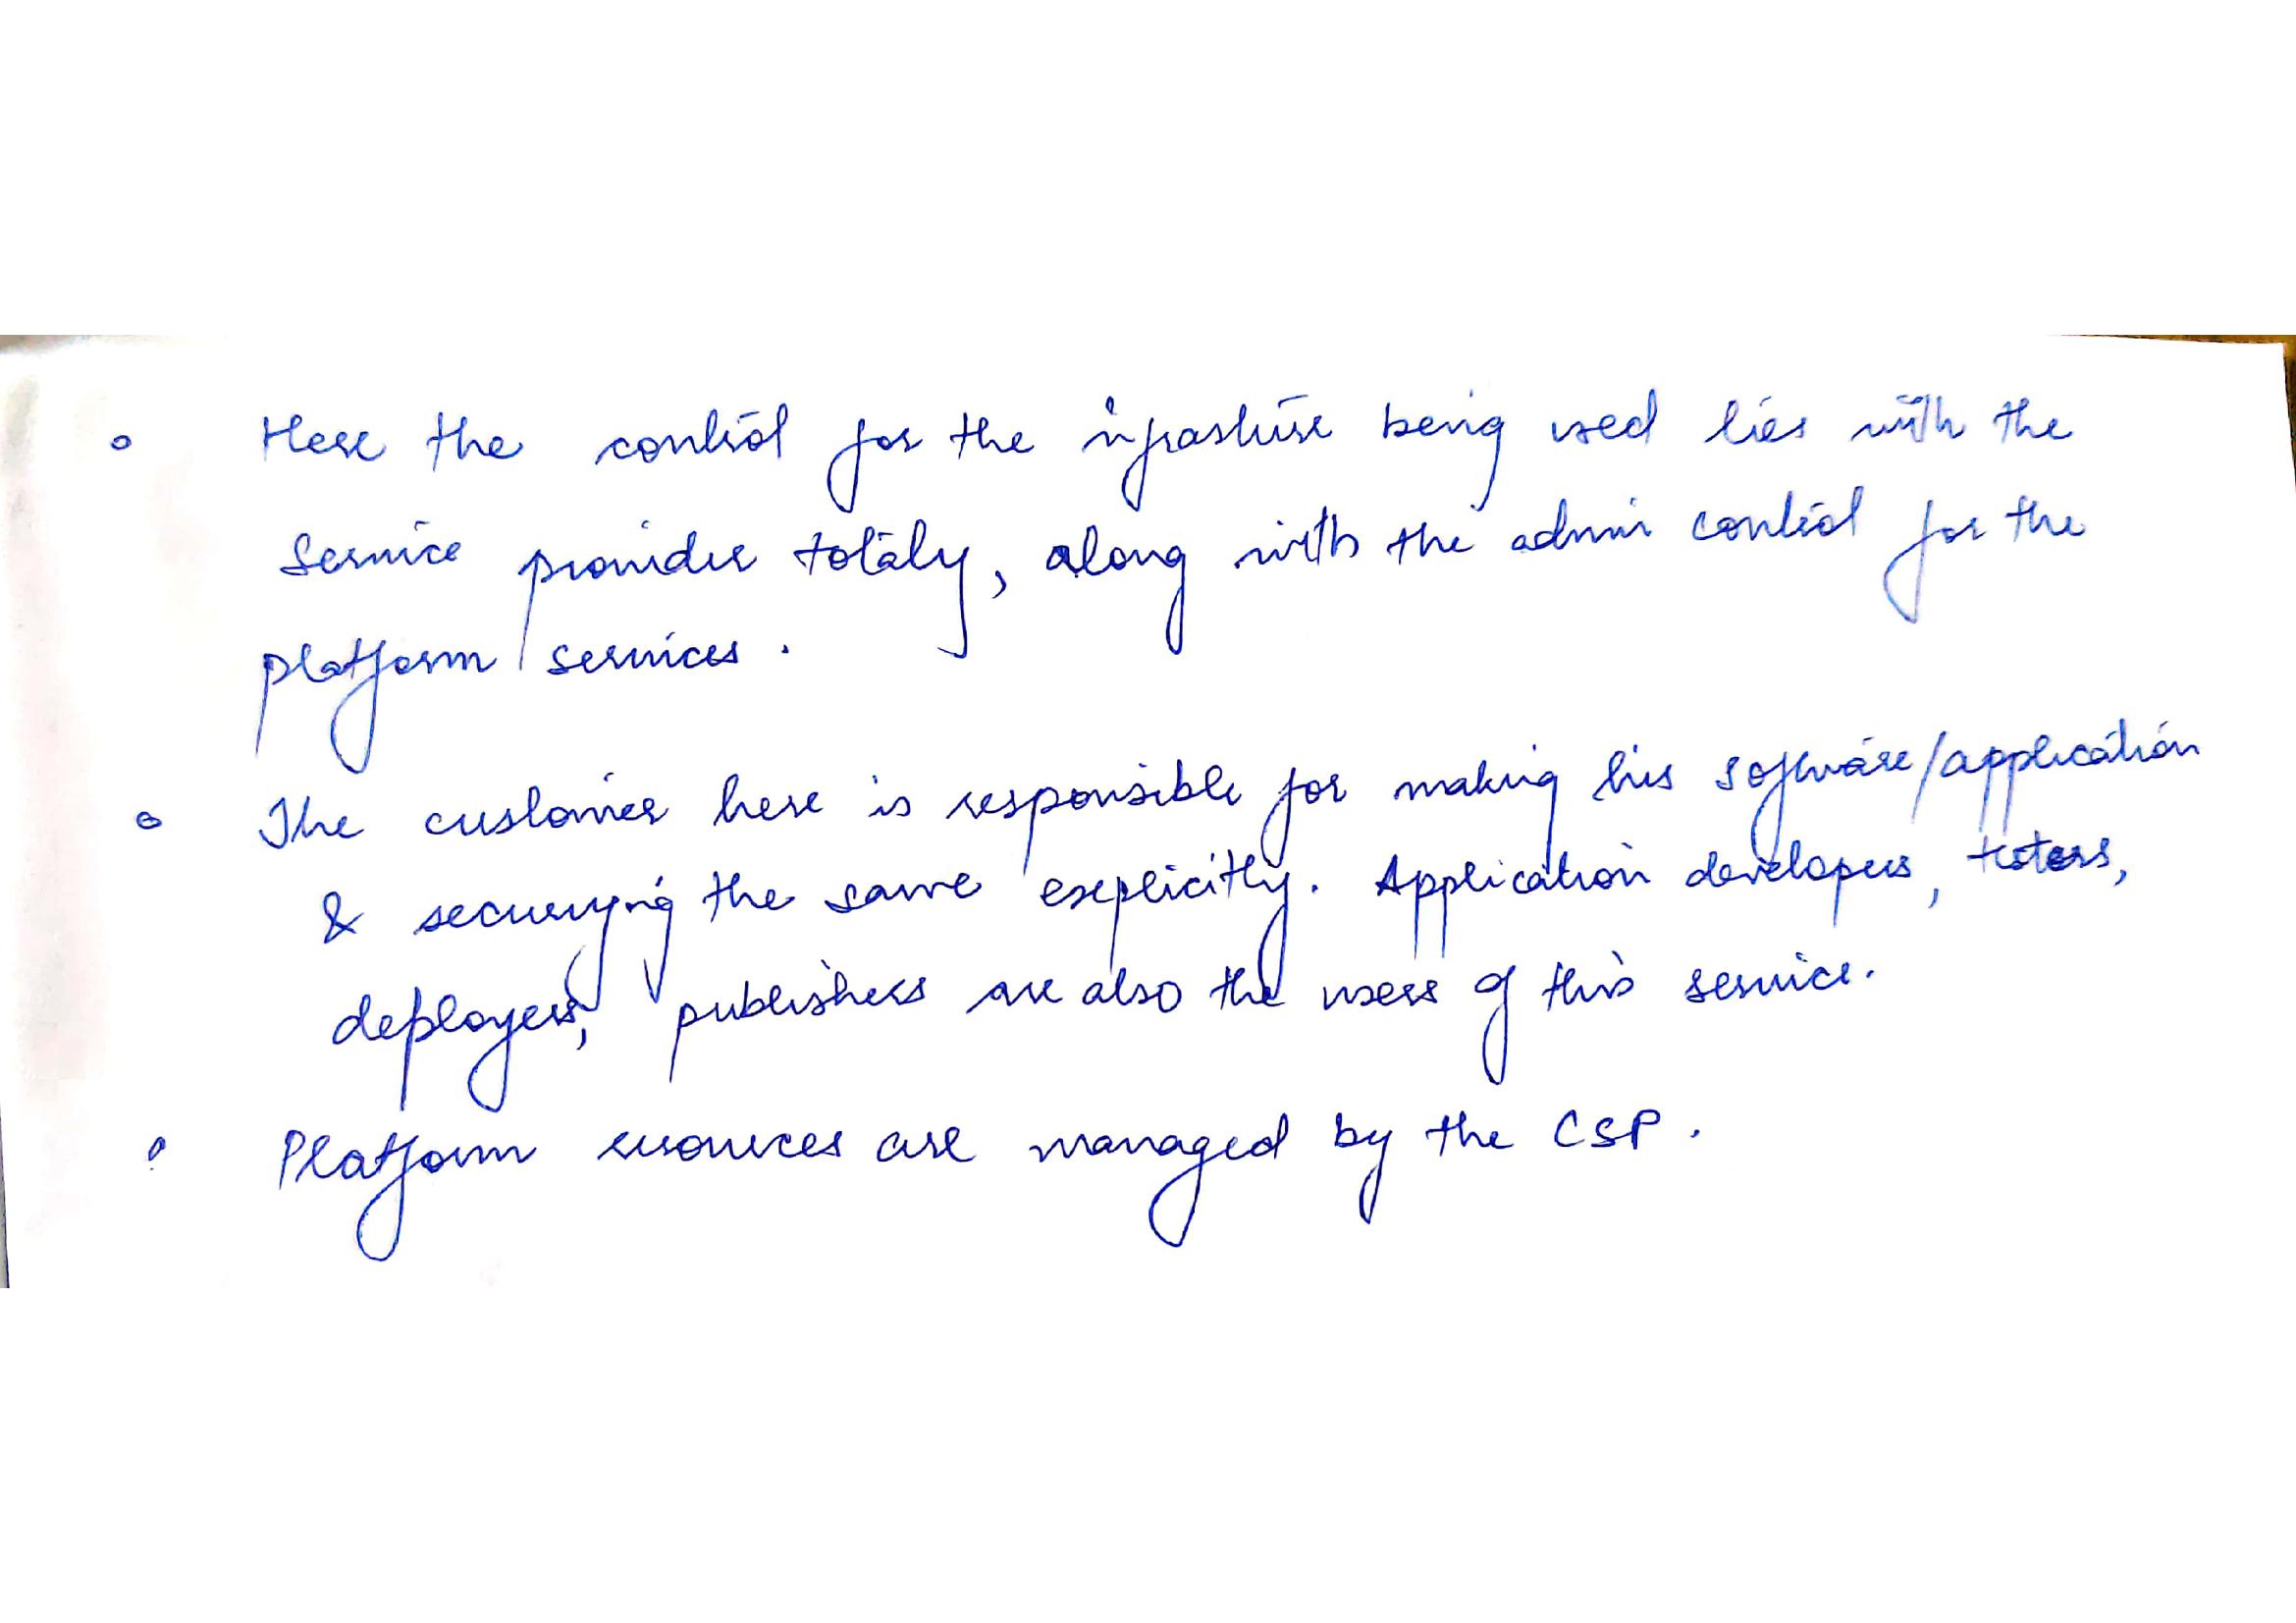 ◦ Here the control for the infrasture being used lies with the
service provider totaly, along with the admin control for the
platform services.
◦ The customer here is responsible for making his software/application
& securying the same explicitly. Application developers, testers,
deployers, publishers are also the users of this service.
◦ Platform resources are managed by the CSP.